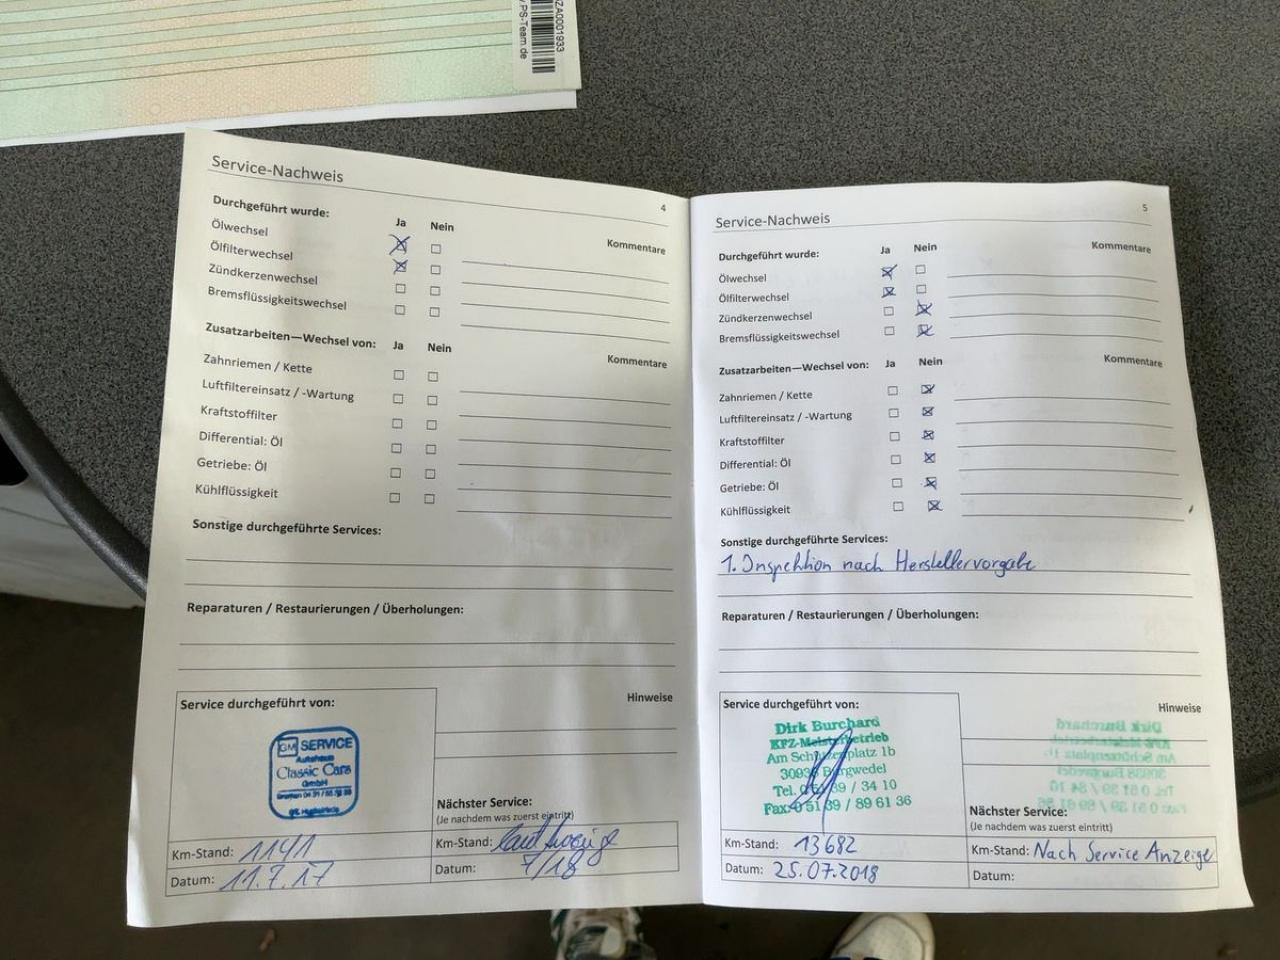 ZA0001933
PS-Team.de
Service-Nachweis
4
Durchgeführt wurde:
Ja
Nein
Kommentare
Ölwechsel
Ölfilterwechsel
Zündkerzenwechsel
Bremsflüssigkeitswechsel
Zusatzarbeiten—Wechsel von:
Ja
Nein
Kommentare
Zahnriemen / Kette
Luftfiltereinsatz / -Wartung
Kraftstoffilter
Differential: Öl
Getriebe: Öl
Kühlflüssigkeit
Sonstige durchgeführte Services:
Reparaturen / Restaurierungen / Überholungen:
Service durchgeführt von:
Hinweise
GM SERVICE
Autohaus
Classic Cars
GmbH
Nächster Service:
(Je nachdem was zuerst eintritt)
Km-Stand: 1141
Km-Stand: laut
Datum: 11.7.17
Datum: 7/18
Service-Nachweis
5
Durchgeführt wurde:
Ja
Nein
Kommentare
Ölwechsel
Ölfilterwechsel
Zündkerzenwechsel
Bremsflüssigkeitswechsel
Zusatzarbeiten—Wechsel von:
Ja
Nein
Kommentare
Zahnriemen / Kette
Luftfiltereinsatz / -Wartung
Kraftstoffilter
Differential: Öl
Getriebe: Öl
Kühlflüssigkeit
Sonstige durchgeführte Services:
1. Inspektion nach Herstellervorgabe
Reparaturen / Restaurierungen / Überholungen:
Service durchgeführt von:
Hinweise
Dirk Burchard
KFZ-Meisterbetrieb
Am Schützenplatz 1b
30938 Burgwedel
Tel. 0 51 39 / 34 10
Fax: 0 51 39 / 89 61 36
Nächster Service:
(Je nachdem was zuerst eintritt)
Km-Stand: 13682
Km-Stand: Nach Service Anzeige
Datum: 25.07.2018
Datum: